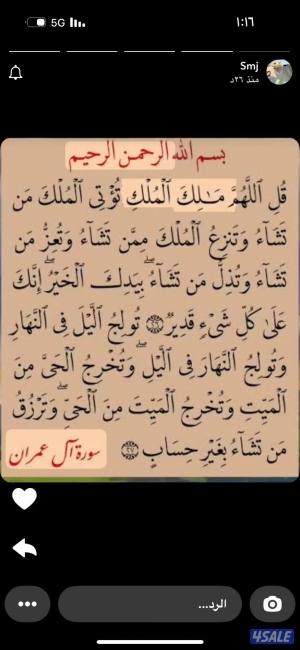 ١:١٦
5G
Smj
منذ ٢٦د
بسم الله الرحمن الرحيم
قُلِ ٱللَّهُمَّ مَـٰلِكَ ٱلْمُلْكِ تُؤْتِى ٱلْمُلْكَ مَن
تَشَآءُ وَتَنزِعُ ٱلْمُلْكَ مِمَّن تَشَآءُ وَتُعِزُّ مَن
تَشَآءُ وَتُذِلُّ مَن تَشَآءُ ۖ بِيَدِكَ ٱلْخَيْرُ ۖ إِنَّكَ
عَلَىٰ كُلِّ شَىْءٍ قَدِيرٌ ﴿٢٦﴾ تُولِجُ ٱلَّيْلَ فِى ٱلنَّهَارِ
وَتُولِجُ ٱلنَّهَارَ فِى ٱلَّيْلِ ۖ وَتُخْرِجُ ٱلْحَىَّ مِنَ
ٱلْمَيِّتِ وَتُخْرِجُ ٱلْمَيِّتَ مِنَ ٱلْحَىِّ ۖ وَتَرْزُقُ
مَن تَشَآءُ بِغَيْرِ حِسَابٍ ﴿٢٧﴾ سورة آل عمران
الرد...
4SALE